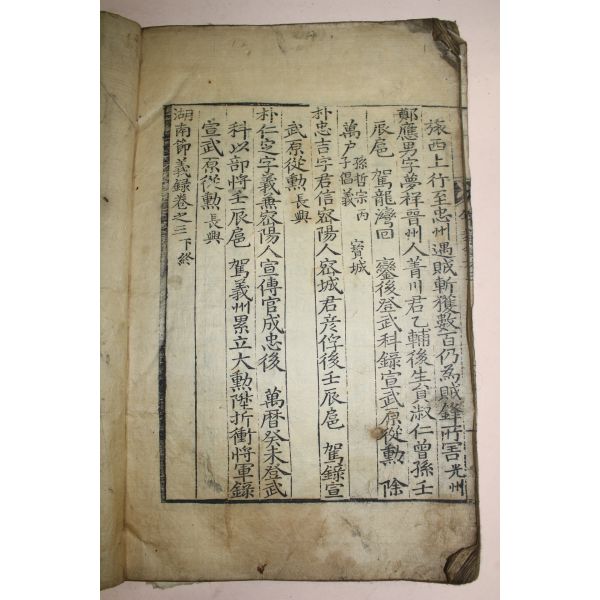 旅西上行至忠州遇賊斬獲數百仍為賊鋒所害光州
鄭應男字夢祥晉州人菁川君乙輔後生員淑仁曾孫壬
辰扈 駕龍灣回 鑾後登武科錄宣武原從勲 除
萬户孫哲宗丙子倡義 寶城
朴忠吉字君信密陽人密城君彦俘後壬辰扈 駕錄宣
武原從勲長興
朴仁定字義兼密陽人宣傳官成忠後 萬曆癸未登武
科以部將壬辰扈 駕義州累立大勲陞折衝將軍錄
宣武原從勲長興
湖南節義錄卷之三下終